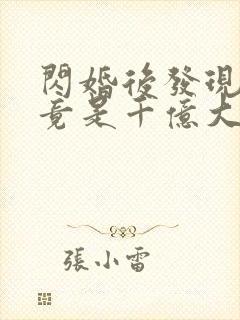 閃婚後發現
竟是千億大
張小雷